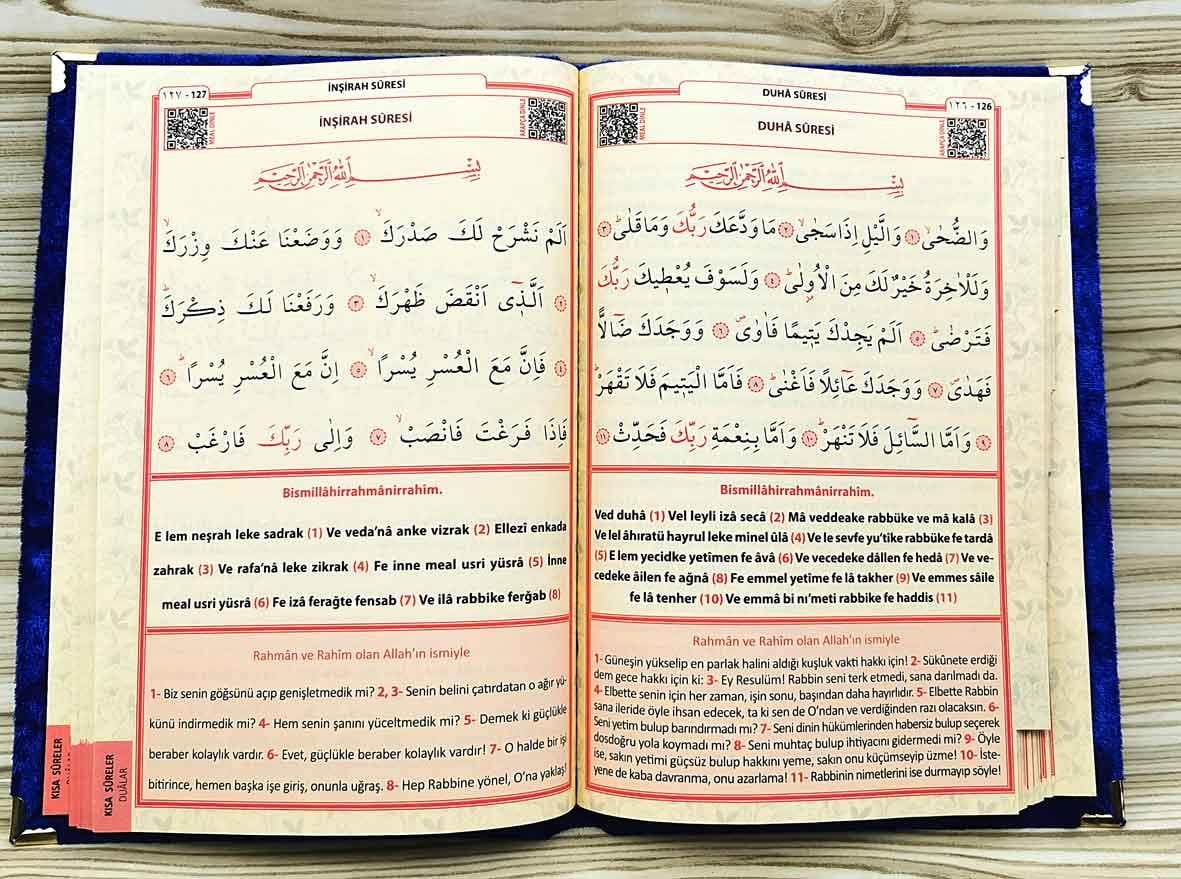 DUHÂ SÛRESİ
١٢٦ - 126
MEAL DİNLE
DUHÂ SÛRESİ
ARAPÇA DİNLE
بِسْمِ اللّٰهِ الرَّحْمٰنِ الرَّحٖيمِ
وَالضُّحٰىۙ ﴿١﴾ وَالَّيْلِ اِذَا سَجٰىۙ ﴿٢﴾ مَا وَدَّعَكَ رَبُّكَ وَمَا قَلٰىؕ ﴿٣﴾
وَلَلْاٰخِرَةُ خَيْرٌ لَكَ مِنَ الْاُو۫لٰىؕ ﴿٤﴾ وَلَسَوْفَ يُعْطٖيكَ رَبُّكَ
فَتَرْضٰىؕ ﴿٥﴾ اَلَمْ يَجِدْكَ يَتٖيمًا فَاٰوٰىࣕ ﴿٦﴾ وَوَجَدَكَ ضَٓالًّا
فَهَدٰىࣕ ﴿٧﴾ وَوَجَدَكَ عَٓائِلًا فَاَغْنٰىؕ ﴿٨﴾ فَاَمَّا الْيَتٖيمَ فَلَا تَقْهَرْؕ
﴿٩﴾ وَاَمَّا السَّٓائِلَ فَلَا تَنْهَرْؕ ﴿١٠﴾ وَاَمَّا بِنِعْمَةِ رَبِّكَ فَحَدِّثْ ﴿١١﴾
Bismillâhirrahmânirrahîm.
Ved duhâ (1) Vel leyli izâ secâ (2) Mâ veddeake rabbüke ve mâ kalâ (3)
Ve lel âhıratü hayrul leke minel ûlâ (4) Ve le sevfe yu'tike rabbüke fe tardâ
(5) E lem yecidke yetîmen fe âvâ (6) Ve vecedeke dâllen fe hedâ (7) Ve ve-
cedeke âilen fe ağnâ (8) Fe emmel yetîme fe lâ takher (9) Ve emmes sâile
fe lâ tenher (10) Ve emmâ bi nı'meti rabbike fe haddis (11)
Rahmân ve Rahîm olan Allah'ın ismiyle
1- Güneşin yükselip en parlak halini aldığı kuşluk vakti hakkı için! 2- Sükûnete erdiği
dem gece hakkı için ki: 3- Ey Resulüm! Rabbin seni terk etmedi, sana darılmadı da.
4- Elbette senin için her zaman, işin sonu, başından daha hayırlıdır. 5- Elbette Rabbin
sana ileride öyle ihsan edecek, ta ki sen de O'ndan ve verdiğinden razı olacaksın. 6-
Seni yetim bulup barındırmadı mı? 7- Seni dinin hükümlerinden habersiz bulup seçerek
dosdoğru yola koymadı mı? 8- Seni muhtaç bulup ihtiyacını gidermedi mi? 9- Öyle
ise, sakın yetimi güçsüz bulup hakkını yeme, sakın onu küçümseyip üzme! 10- İste-
yene de kaba davranma, onu azarlama! 11- Rabbinin nimetlerini ise durmayıp söyle!
١٢٧ - 127
İNŞİRAH SÛRESİ
MEAL DİNLE
İNŞİRAH SÛRESİ
ARAPÇA DİNLE
بِسْمِ اللّٰهِ الرَّحْمٰنِ الرَّحٖيمِ
اَلَمْ نَشْرَحْ لَكَ صَدْرَكَۙ ﴿١﴾ وَوَضَعْنَا عَنْكَ وِزْرَكَۙ
﴿٢﴾ اَلَّذٖٓى اَنْقَضَ ظَهْرَكَۙ ﴿٣﴾ وَرَفَعْنَا لَكَ ذِكْرَكَؕ
﴿٤﴾ فَاِنَّ مَعَ الْعُسْرِ يُسْرًاۙ ﴿٥﴾ اِنَّ مَعَ الْعُسْرِ يُسْرًاؕ ﴿٦﴾
فَاِذَا فَرَغْتَ فَانْصَبْۙ ﴿٧﴾ وَاِلٰى رَبِّكَ فَارْغَبْ ﴿٨﴾
Bismillâhirrahmânirrahîm.
E lem neşrah leke sadrak (1) Ve veda'nâ anke vizrak (2) Ellezî enkada
zahrak (3) Ve rafa'nâ leke zikrak (4) Fe inne meal usri yüsrâ (5) İnne
meal usri yüsrâ (6) Fe izâ ferağte fensab (7) Ve ilâ rabbike ferğab (8)
Rahmân ve Rahîm olan Allah'ın ismiyle
1- Biz senin göğsünü açıp genişletmedik mi? 2, 3- Senin belini çatırdatan o ağır yü-
künü indirmedik mi? 4- Hem senin şanını yüceltmedik mi? 5- Demek ki güçlükle
beraber kolaylık vardır. 6- Evet, güçlükle beraber kolaylık vardır! 7- O halde bir işi
bitirince, hemen başka işe giriş, onunla uğraş. 8- Hep Rabbine yönel, O'na yaklaş!
KISA SÛRELER
KISA SÛRELER
DUÂLAR